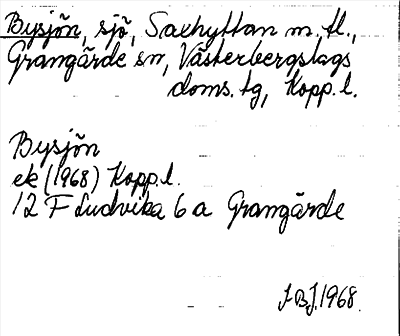 Bysjön, sjö, Saxhyttan m. fl.,
Grangärde sn, Västerbergslags
doms. tg, Kopp. l.
Bysjön
ek (1968) Kopp. l.
12 F Ludvika 6 a Grangärde
J. B. J. 1968.